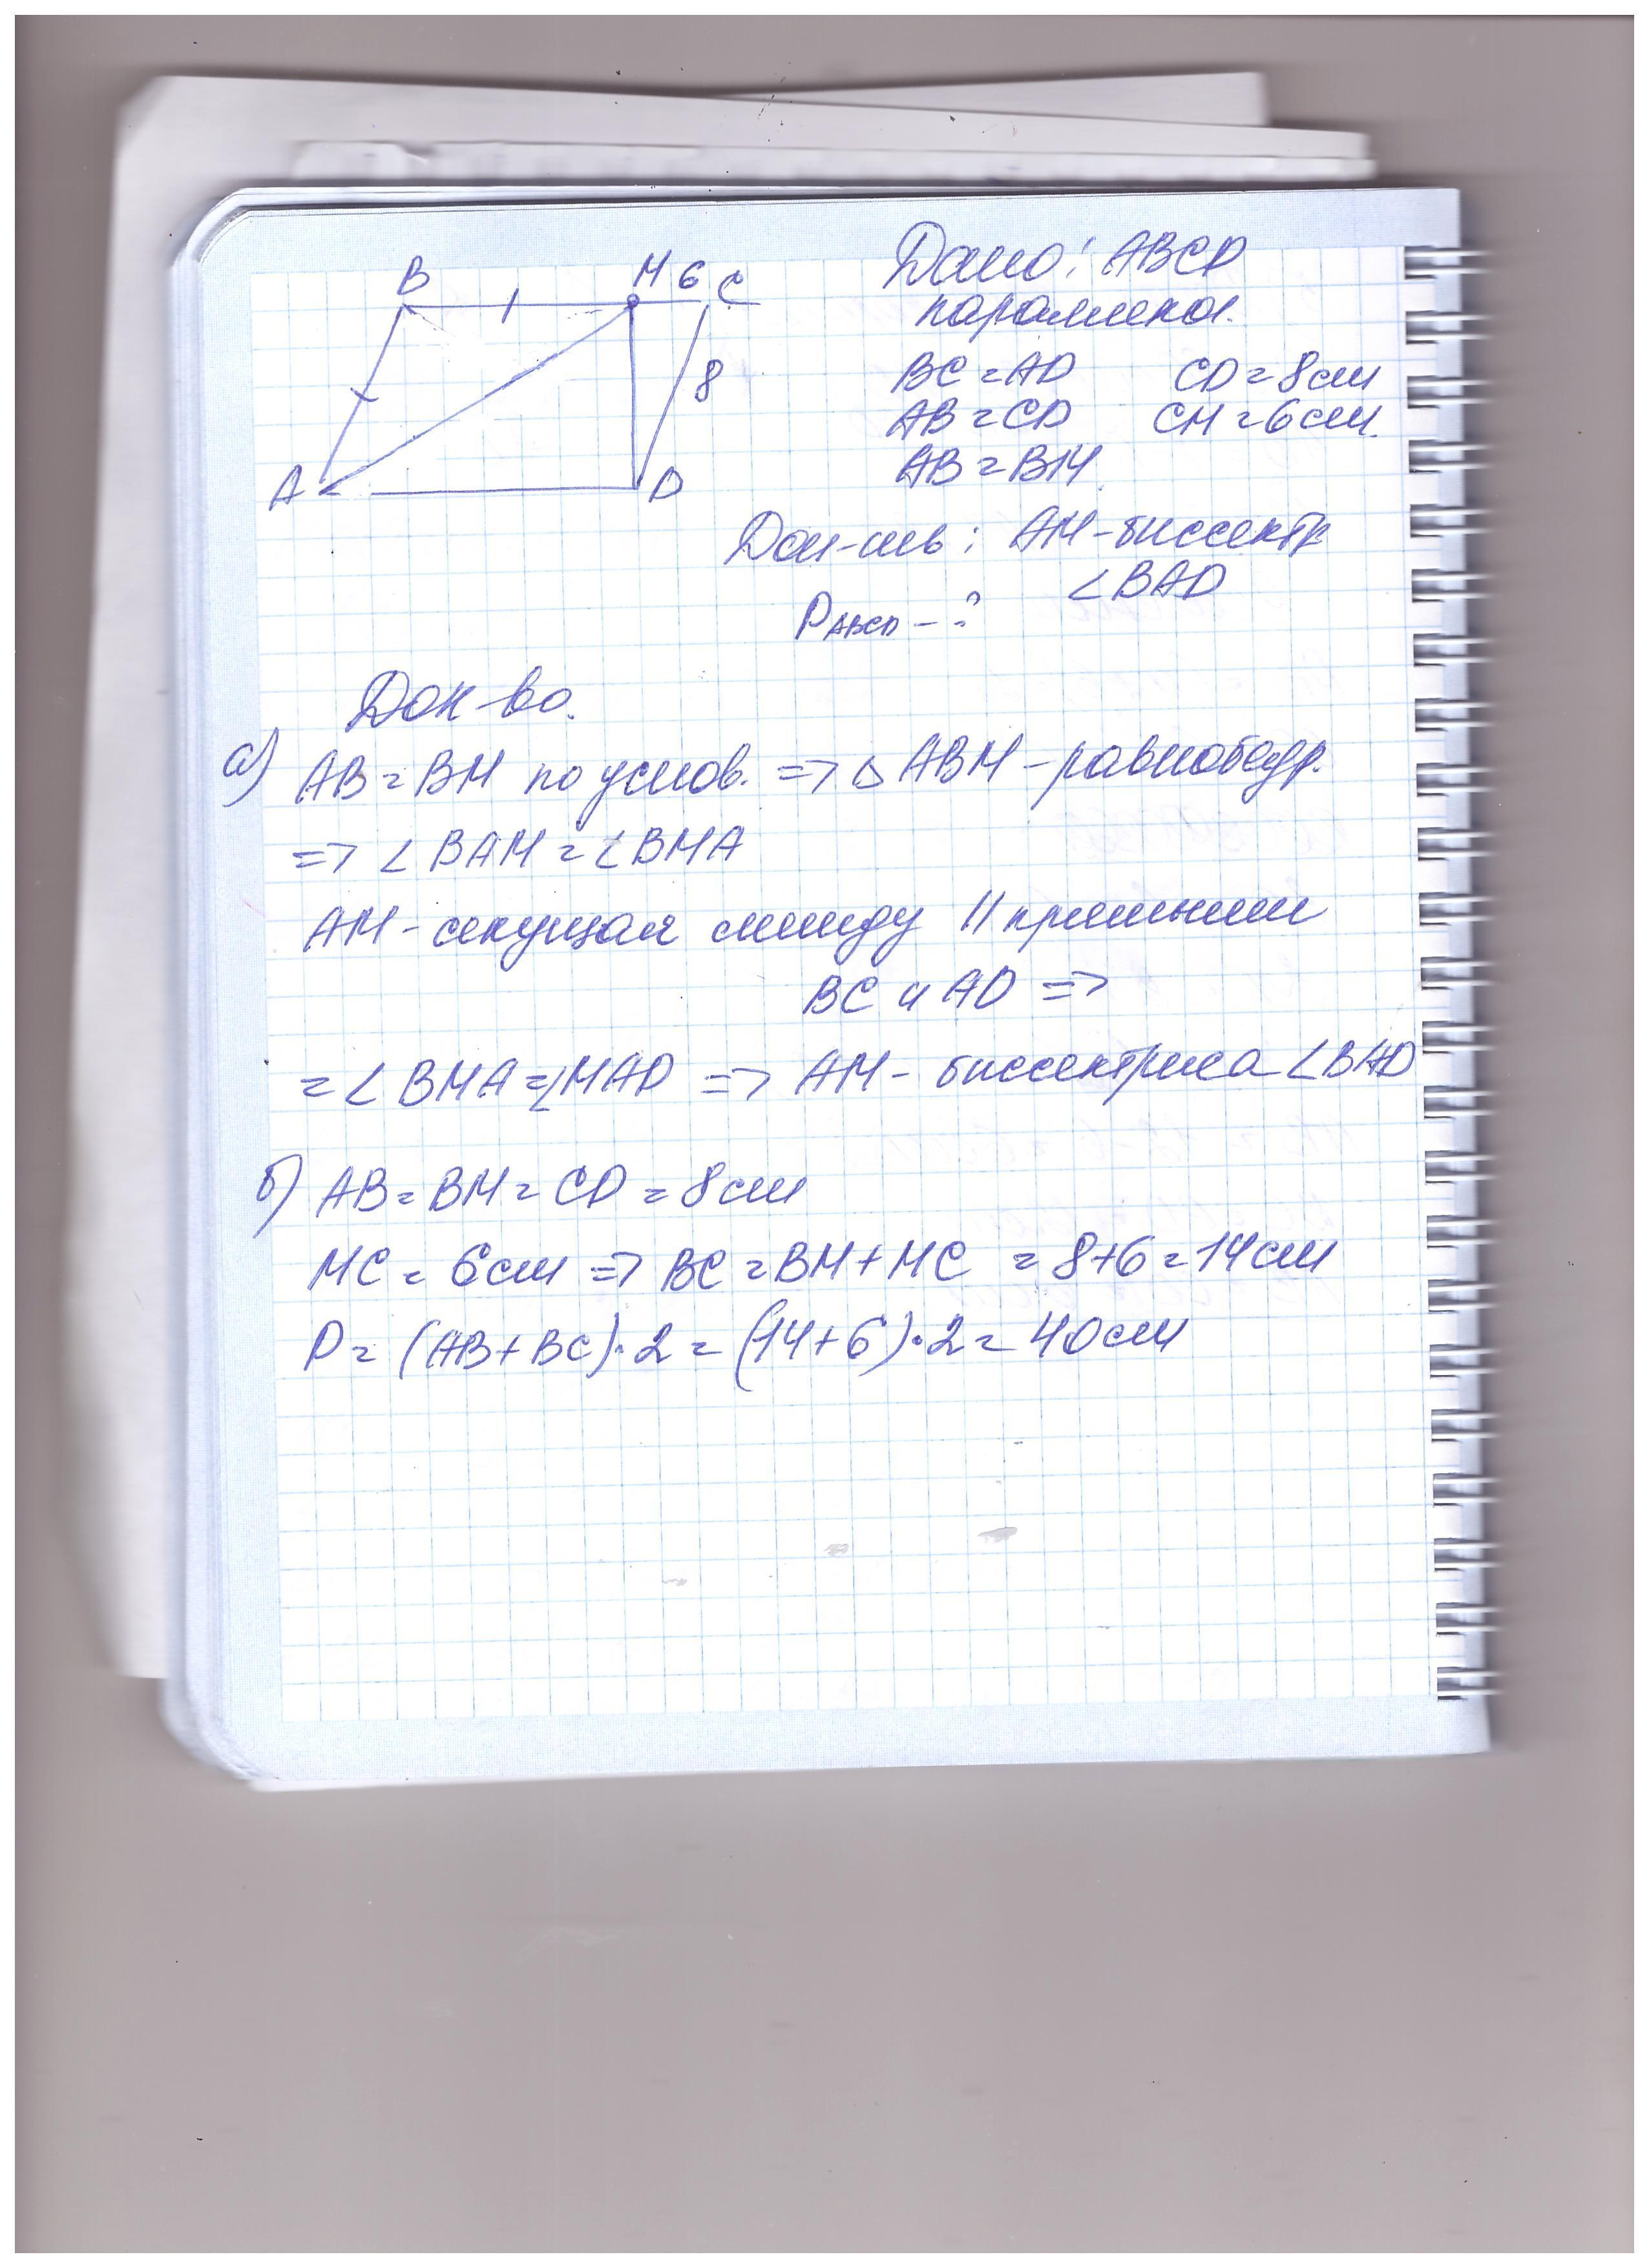 B M 6 C
8
A D
Дано: ABCD
параллело.
BC = AD CD = 8см
AB = CD CM = 6см.
AB = BM
Док-ть: AM - биссектр
∠BAD
P ABCD - ?
Док-во.
а) AB = BM по услов. => △ ABM - равнобедр.
=> ∠ BAM = ∠BMA
AM - секущая между || прямыми
BC и AD =>
= ∠ BMA = ∠MAD => AM - биссектриса ∠BAD
б) AB = BM = CD = 8см
MC = 6см => BC = BM + MC = 8+6 = 14см
P = (AB + BC)·2 = (14+6)·2 = 40см